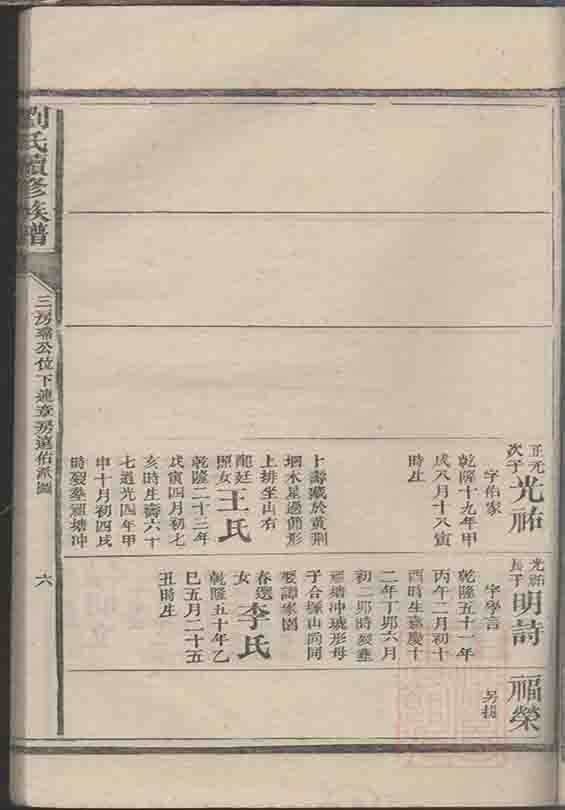 劉氏續修族譜
三房
公位下
房
佑派圖
六
正元
次子
光祐
字佑家
乾隆十九年甲
戌八月十八寅
時生
十壽藏於黄荆
堋木星過節形
上排坐山右
龍廷
照女
王氏
乾隆二十三年
戊寅四月初七
亥時生壽六十
七道光四年甲
申十月初四戌
時歿塟
塘冲
光祐
長子
明詩
字學言
乾隆五十一年
丙午二月初十
酉時生嘉慶十
二年丁卯六月
初二卯時歿塟
塘冲
形母
子合塚山向同
娶譚家園
春選
女
李氏
乾隆五十年乙
巳五月二十五
丑時生
福榮
另提